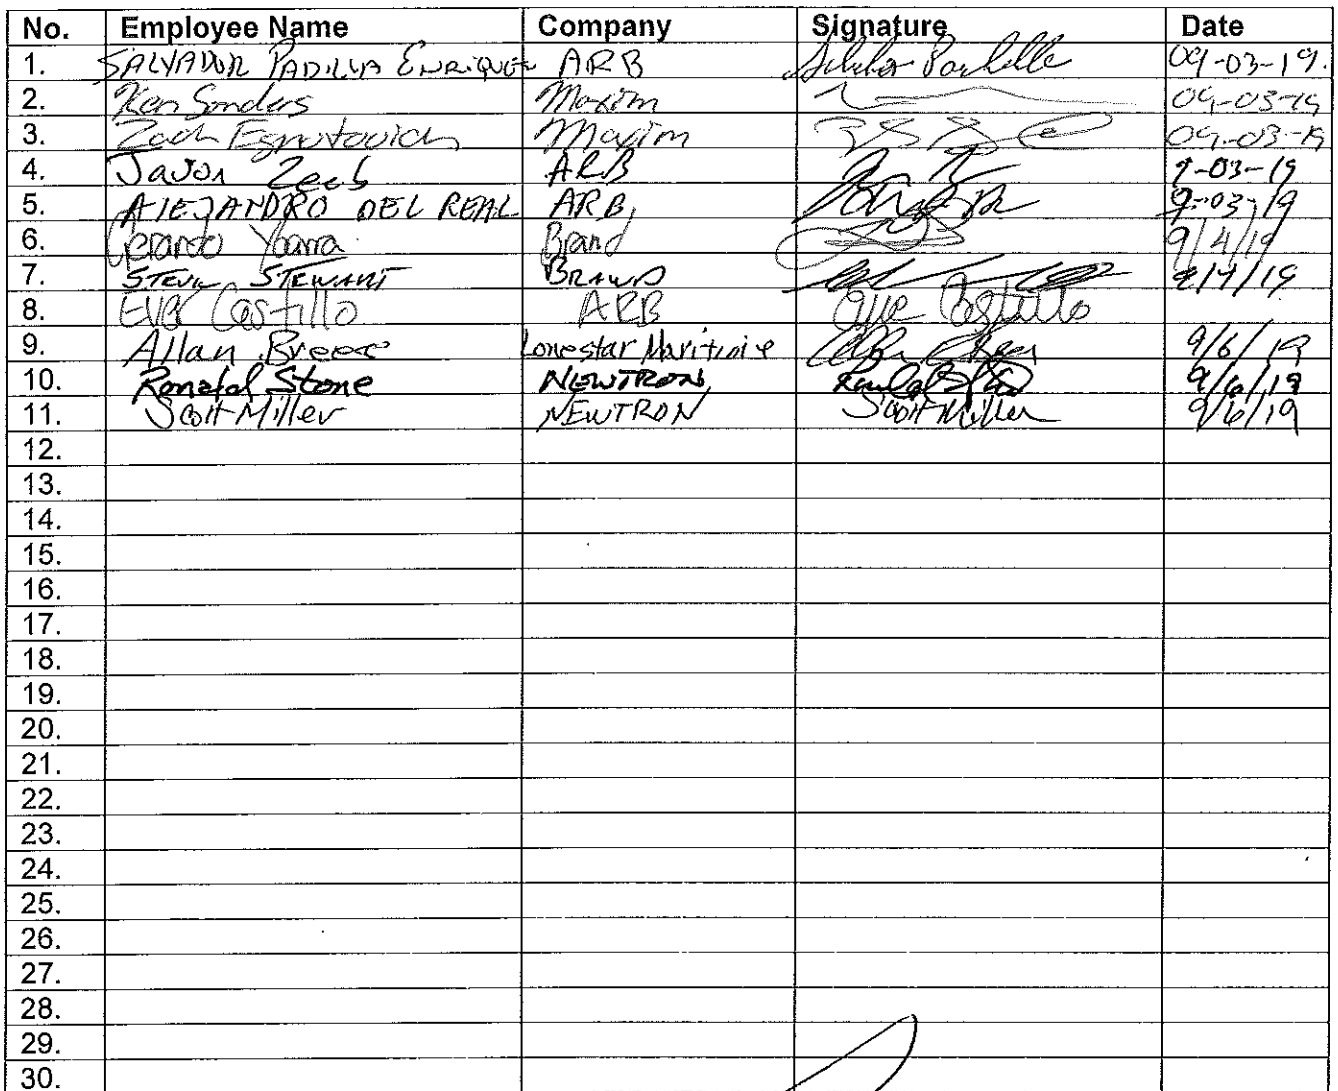 No. Employee Name Company Signature Date
1. SALVADOR PADILLA ENRIQUEZ ARB 09-03-19.
2. Ken Sanders Maxim 09-03-19
3. Zach Maxim 09-03-19
4. Jason ARB 9-03-19
5. ALEJANDRO DEL REAL ARB 9-03-19
6. Gerardo Ybarra Brand 9/4/19
7. STEVE STEWART BRAND 9/4/19
8. EVER Castillo ARB Castillo
9. Allan Lonestar Maritime 9/6/19
10. Ronald Stone NEWTRON 9/6/19
11. Scott Miller NEWTRON Scott Miller 9/6/19
12.
13.
14.
15.
16.
17.
18.
19.
20.
21.
22.
23.
24.
25.
26.
27.
28.
29.
30.